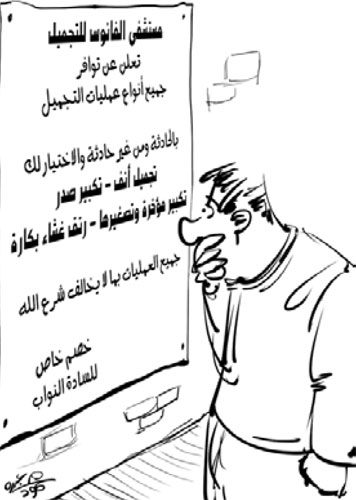 مستشفى الفانوس للتجميل
تعلن عن توافر
جميع أنواع عمليات التجميل
بالحادثة ومن غير حادثة والاختيار لك
تجميل أنف - تكبير صدر
تكبير مؤخرة وتصغيرها - رتق غشاء بكارة
جميع العمليات بما لا يخالف شرع الله
خصم خاص
للسادة النواب